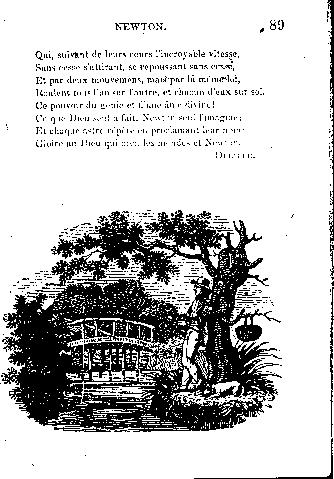 NEWTON. 89
Qui, suivant de leurs cours l'incroyable vitesse,
Sans cesse s'attirant, se repoussant sans cesse,
Et par deux mouvemens, mais par la même loi,
Roulent tous l'un sur l'autre, et chacun d'eux sur soi.
O pouvoir du génie et d'une âme divine!
Ce que Dieu seul a fait, Newton seul l'imagine;
Et chaque astre répète en proclamant leur nom:
Gloire au Dieu qui créa les mondes et Newton.
DELILLE.